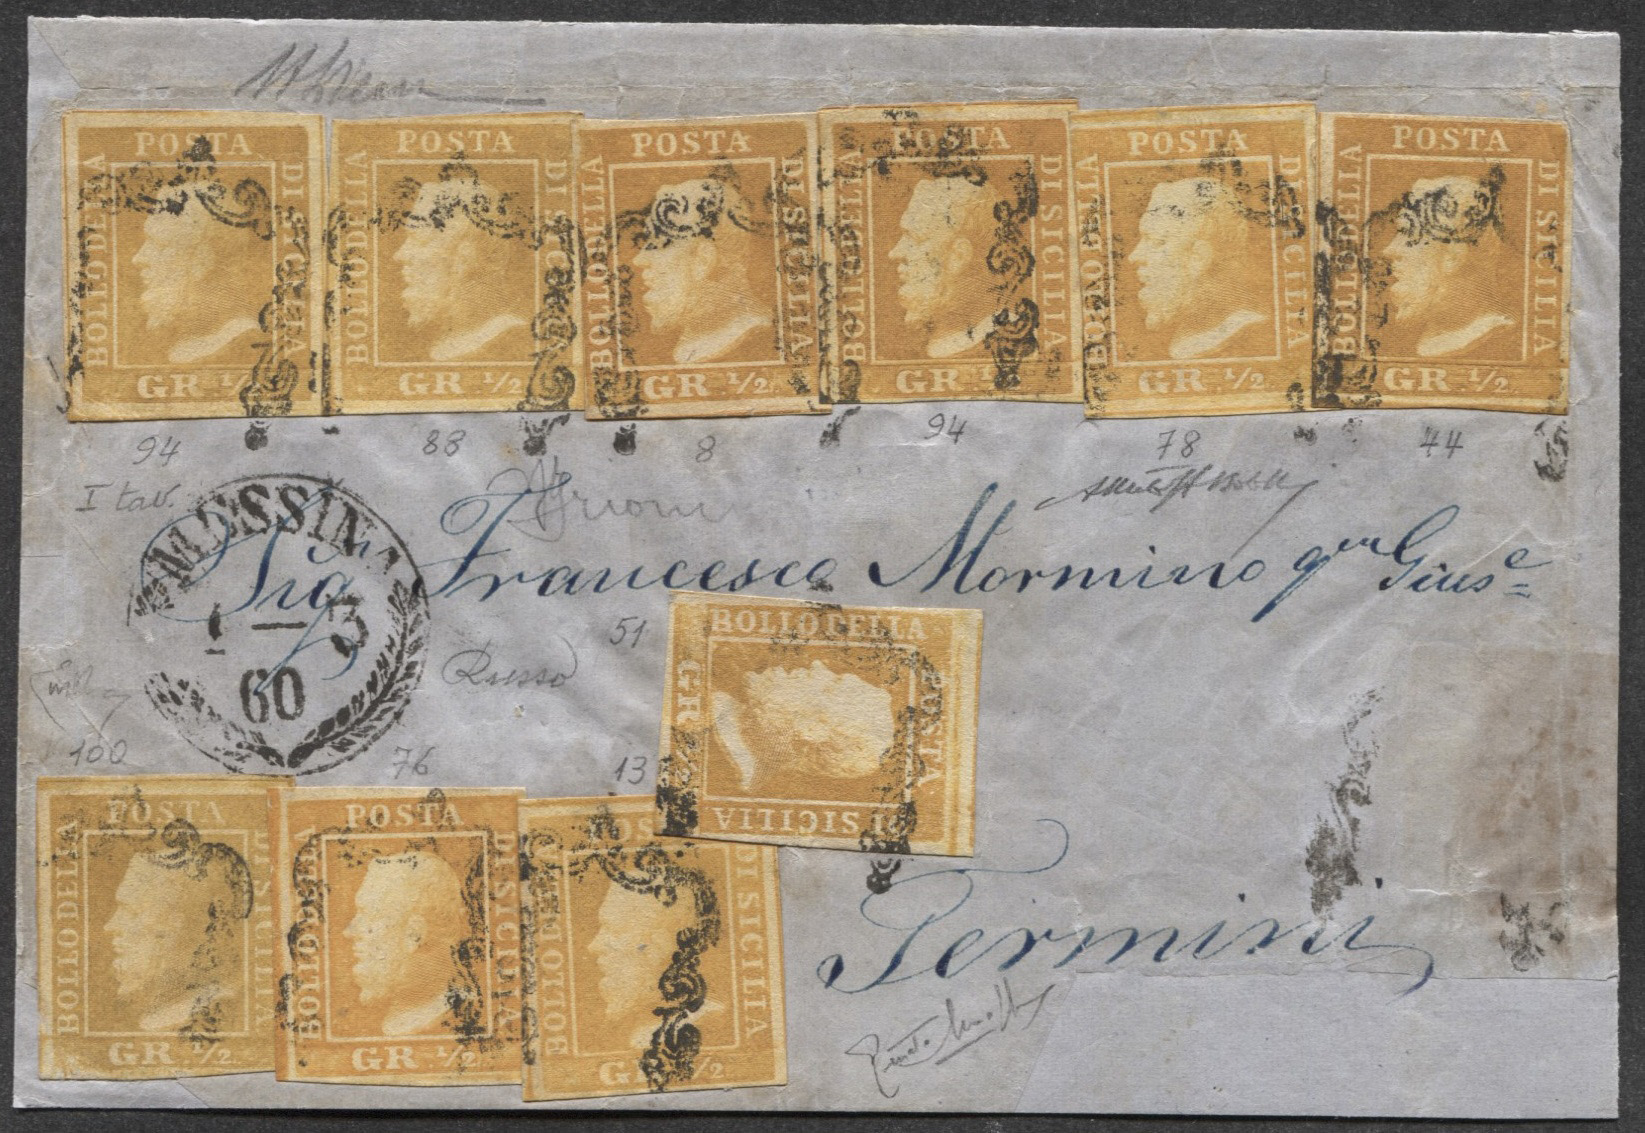 POSTA BOLLO DELLA DI SICILIA GR. 1/2.
POSTA BOLLO DELLA DI SICILIA GR. 1/2.
POSTA BOLLO DELLA DI SICILIA GR. 1/2.
POSTA BOLLO DELLA DI SICILIA GR. 1/2.
POSTA BOLLO DELLA DI SICILIA GR. 1/2.
POSTA BOLLO DELLA DI SICILIA GR. 1/2.
94 88 8 94 78 44
I tav.
MESSINA
1 — 3
60
Sig Francesco Mormino qm Gius.e
51
Russo
POSTA BOLLO DELLA DI SICILIA GR. 1/2
100 76 13
POSTA BOLLO DELLA DI SICILIA GR. 1/2.
POSTA BOLLO DELLA DI SICILIA GR. 1/2.
POSTA BOLLO DELLA DI SICILIA GR. 1/2
Termini